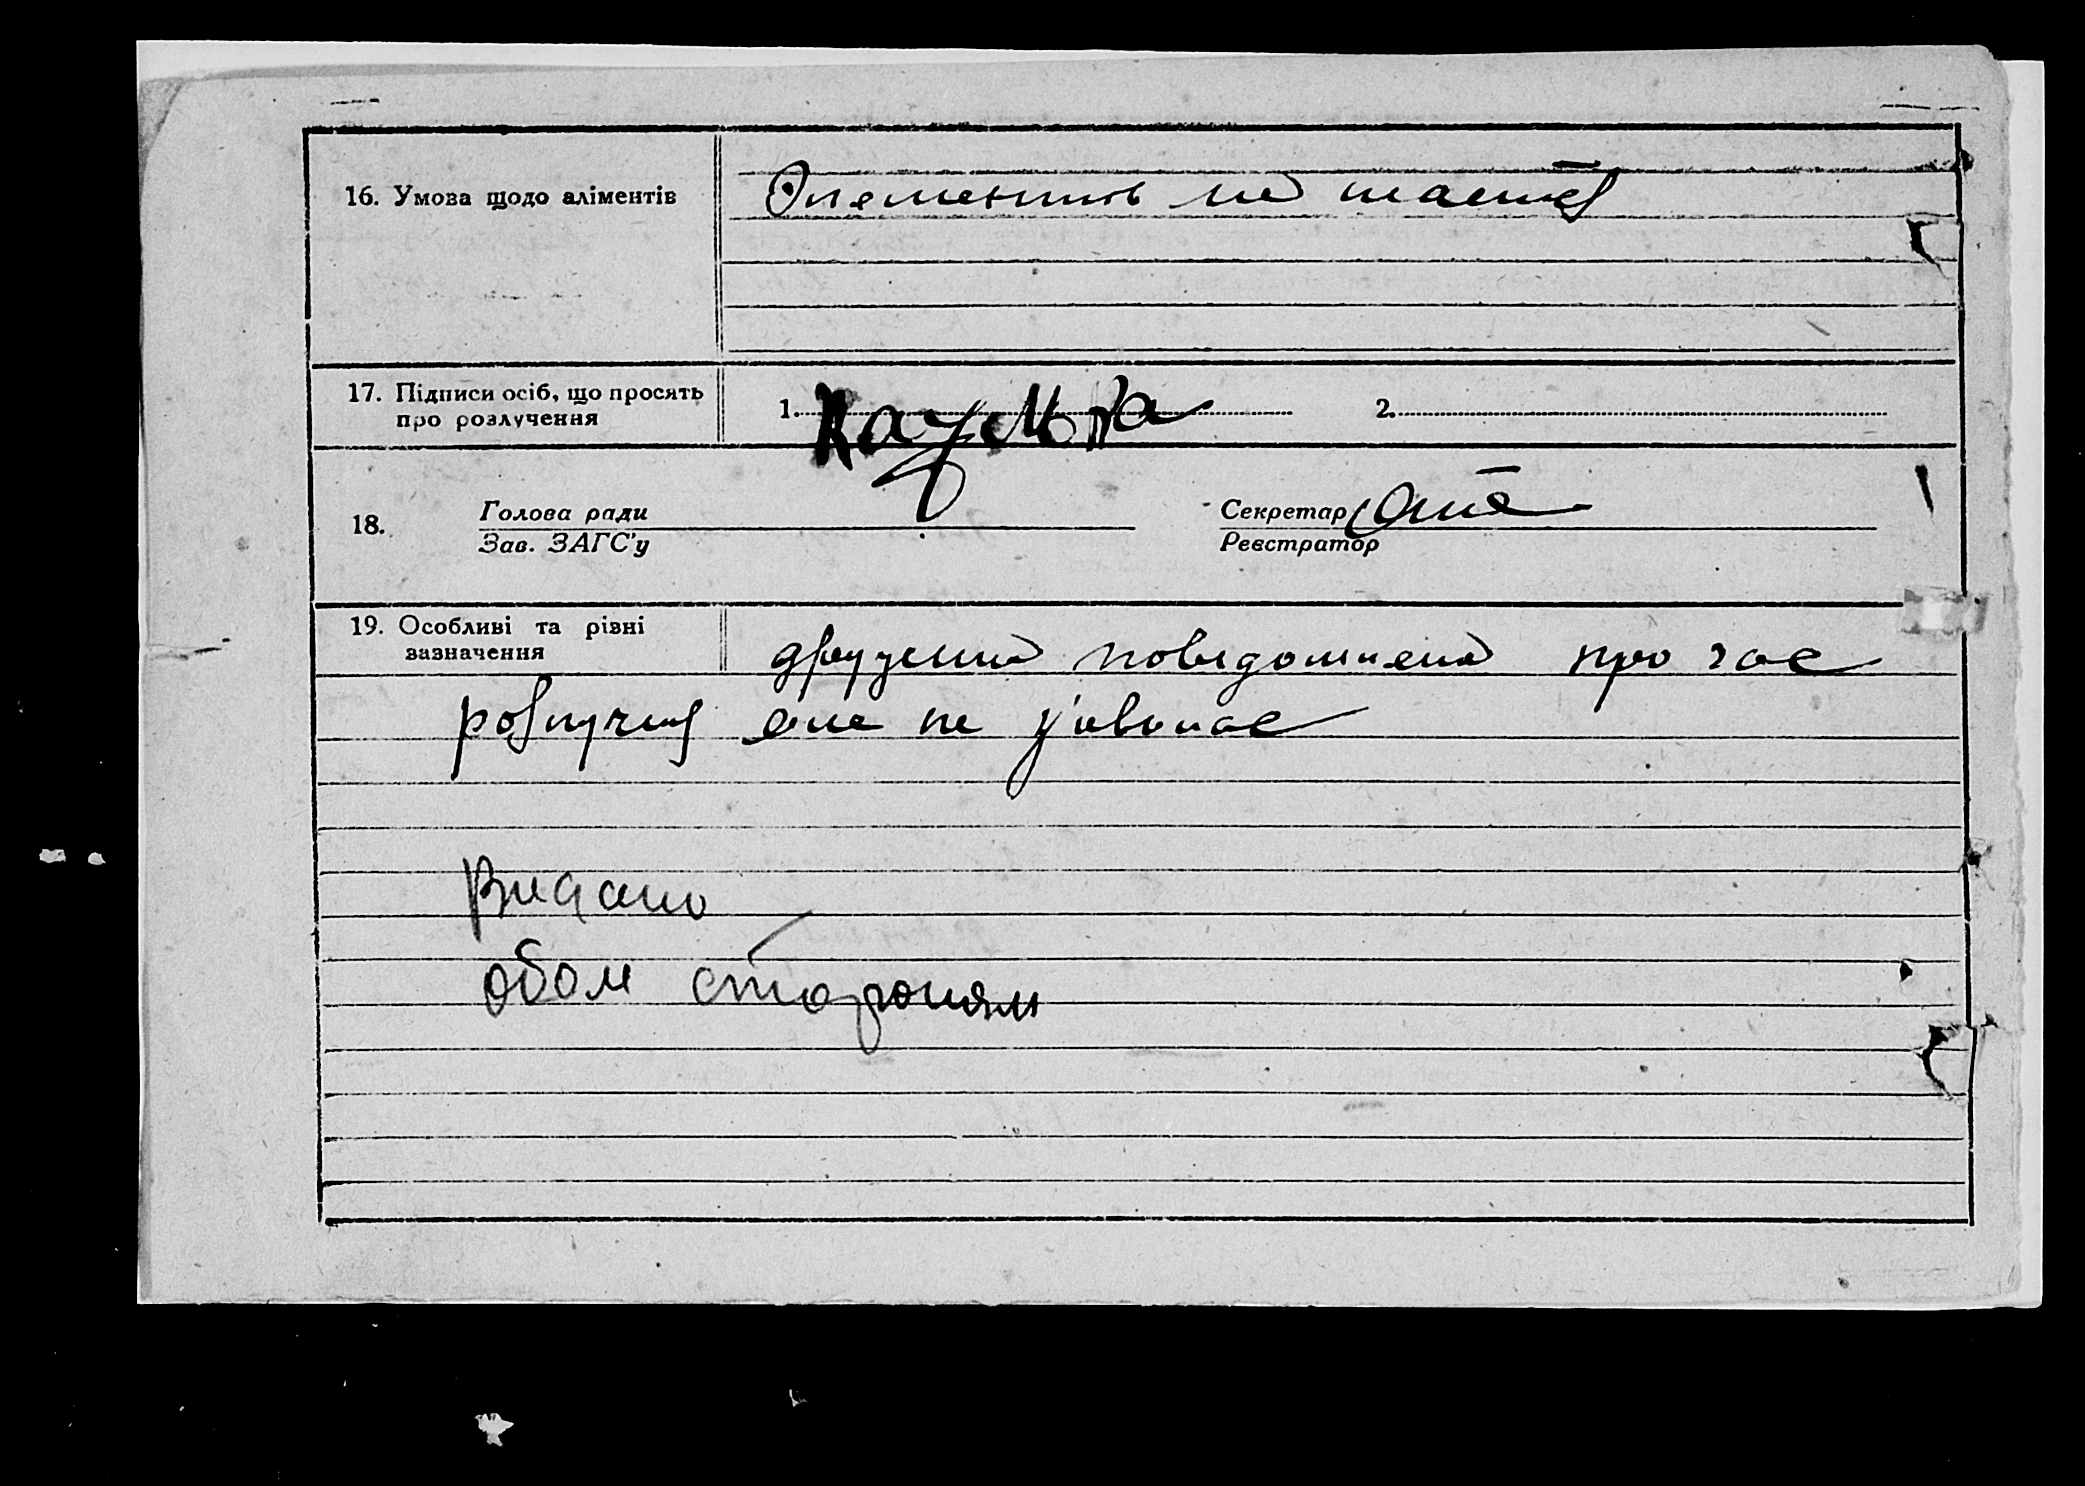 16. Умова щодо аліментів
Элементів не плате
17. Підписи осіб, що просять
про розлучення
1.
2.
18.
Голова ради
Зав. ЗАГС'у
Секретар
Реєстратор
19. Особливі та різні
зазначення
повідомлена про час
розлучня але не з'явилась
Видано
обом сторонам